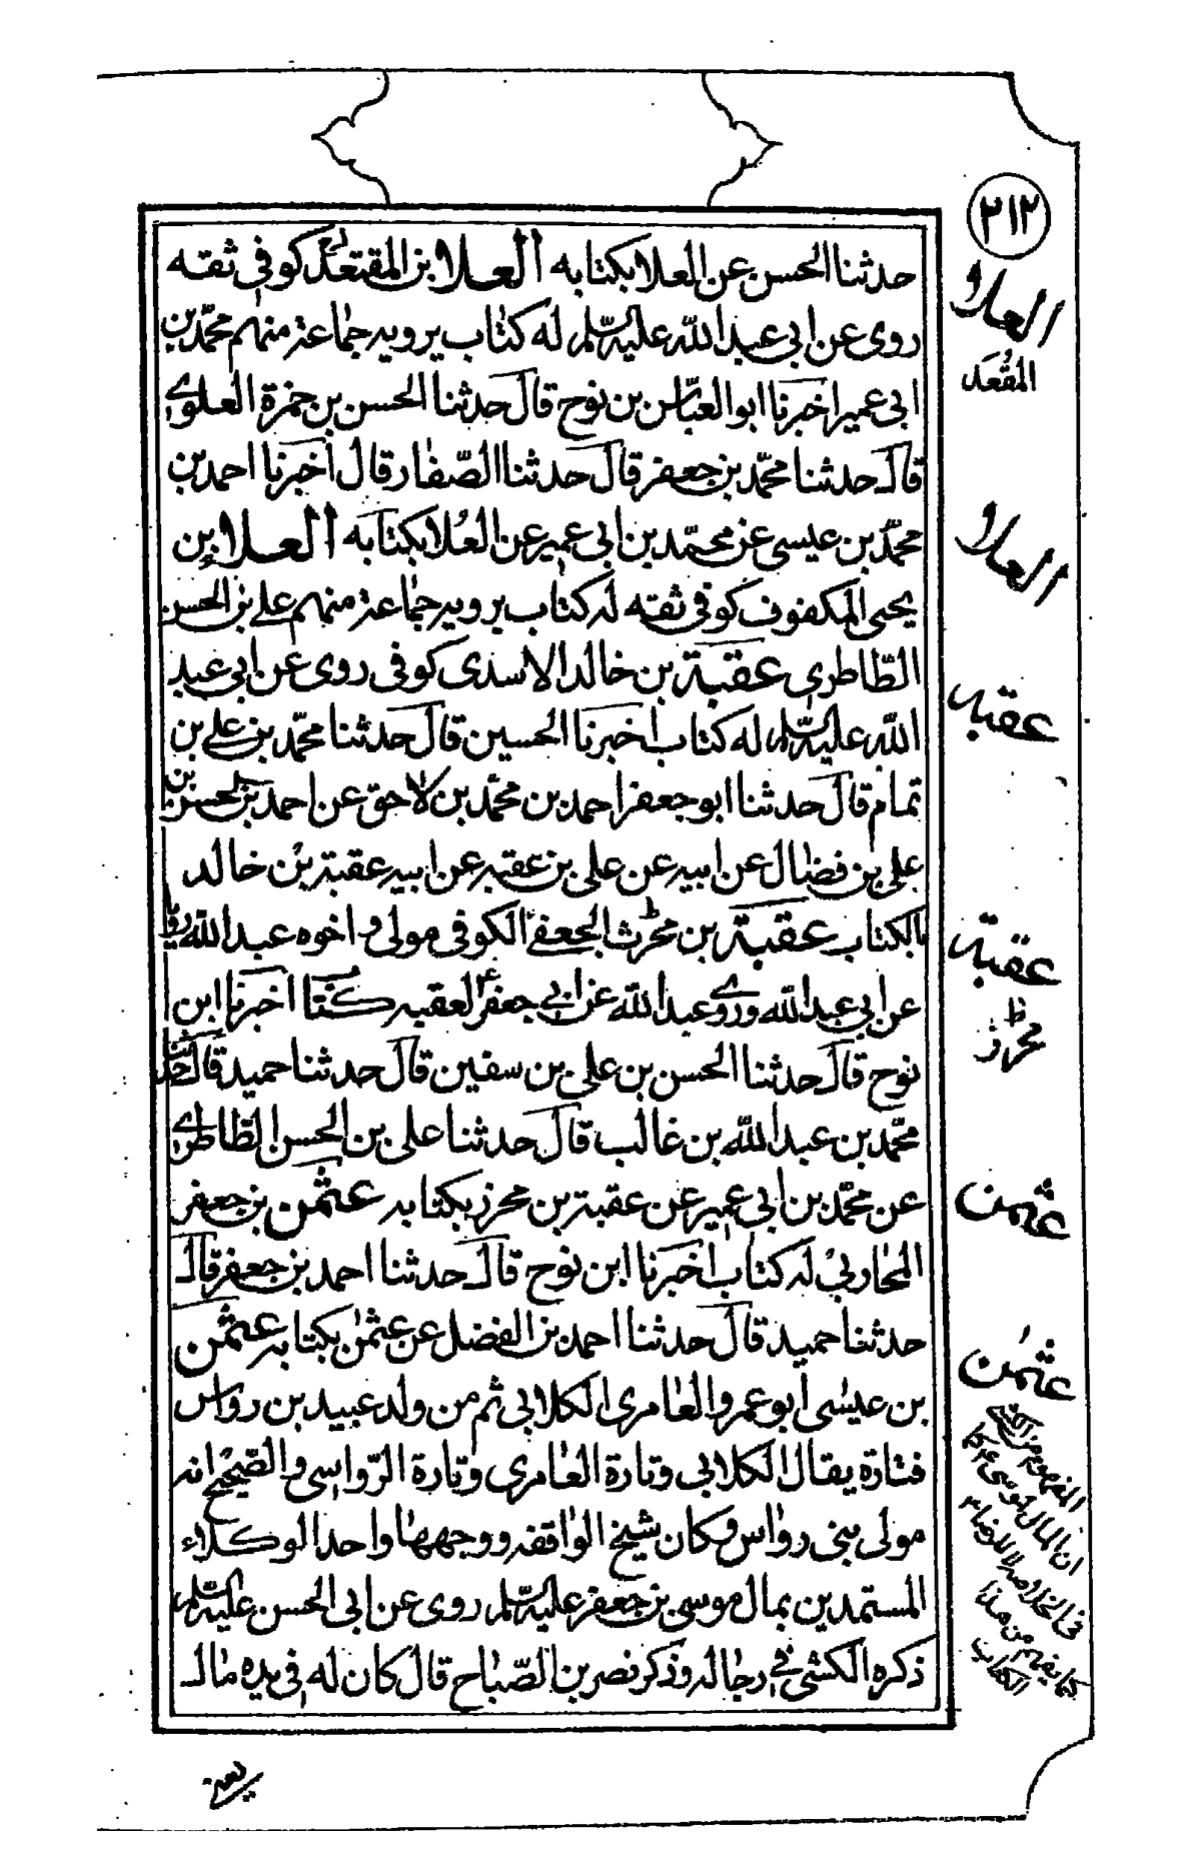 ٢١٢
حدثنا الحسن عن العلا بكتابه العلا بن المقعد كوفي ثقه
روى عن ابي عبد الله عليه السلم له كتاب يرويه جماعة منهم محمد بن
ابي عمير اخبرنا ابو العباس بن نوح قال حدثنا الحسن بن حمزة العلوي
قال حدثنا محمد بن جعفر قال حدثنا الصفار قال اخبرنا احمد بن
محمد بن عيسى عن محمد بن ابي عمير عن العلا بكتابه العلا بن
يحيى المكفوف كوفي ثقه له كتاب يرويه جماعة منهم علي بن الحسن
الطاطري عقبة بن خالد الاسدى كوفى روى عن ابي عبد
الله عليه السلم له كتاب اخبرنا الحسين قال حدثنا محمد بن علي بن
تمام قال حدثنا ابو جعفر احمد بن محمد بن لاحق عن احمد بن الحسن بن
علي بن فضال عن ابيه عن علي بن عقبه عن ابيه عقبة بن خالد
بالكتاب عقبة بن محرز الجعفي الكوفي مولى واخوه عبد الله رويا
عن ابي عبد الله وروى عبد الله عن ابي جعفر ع لعقبه كتاب اخبرنا ابن
نوح قال حدثنا الحسن بن علي بن سفين قال حدثنا حميد قال حدثنا
محمد بن عبد الله بن غالب قال حدثنا علي بن الحسن الطاطري
عن محمد بن ابي عمير عن عقبة بن محرز بكتابه عثمن بن جعفر
المحاربي له كتاب اخبرنا ابن نوح قال حدثنا احمد بن جعفر قال
حدثنا حميد قال حدثنا احمد بن الفضل عن عثمن بكتابه عثمن
بن عيسى ابو عمرو العامرى الكلابي ثم من ولد عبيد بن رواس
فتارة يقال الكلابي وتارة العامري وتارة الرواسي والصحيح انه
مولى بني رواس وكان شيخ الواقفه ووجهها واحد الوكلاء
المستمدين بمال موسى بن جعفر عليه السلم روى عن ابي الحسن عليه السلم
ذكره الكشي في رجاله وذكر نصر بن الصباح قال كان له في يده مال
العلا
المقعد
العلا
عقبه
عقبة
محرز
عثمن
عثمن
المفهوم من الكشي
ان المال لموسى ع كما
في الخلاصه لا للرضا ع
كما يفهم من هذا
الكتاب
يعني